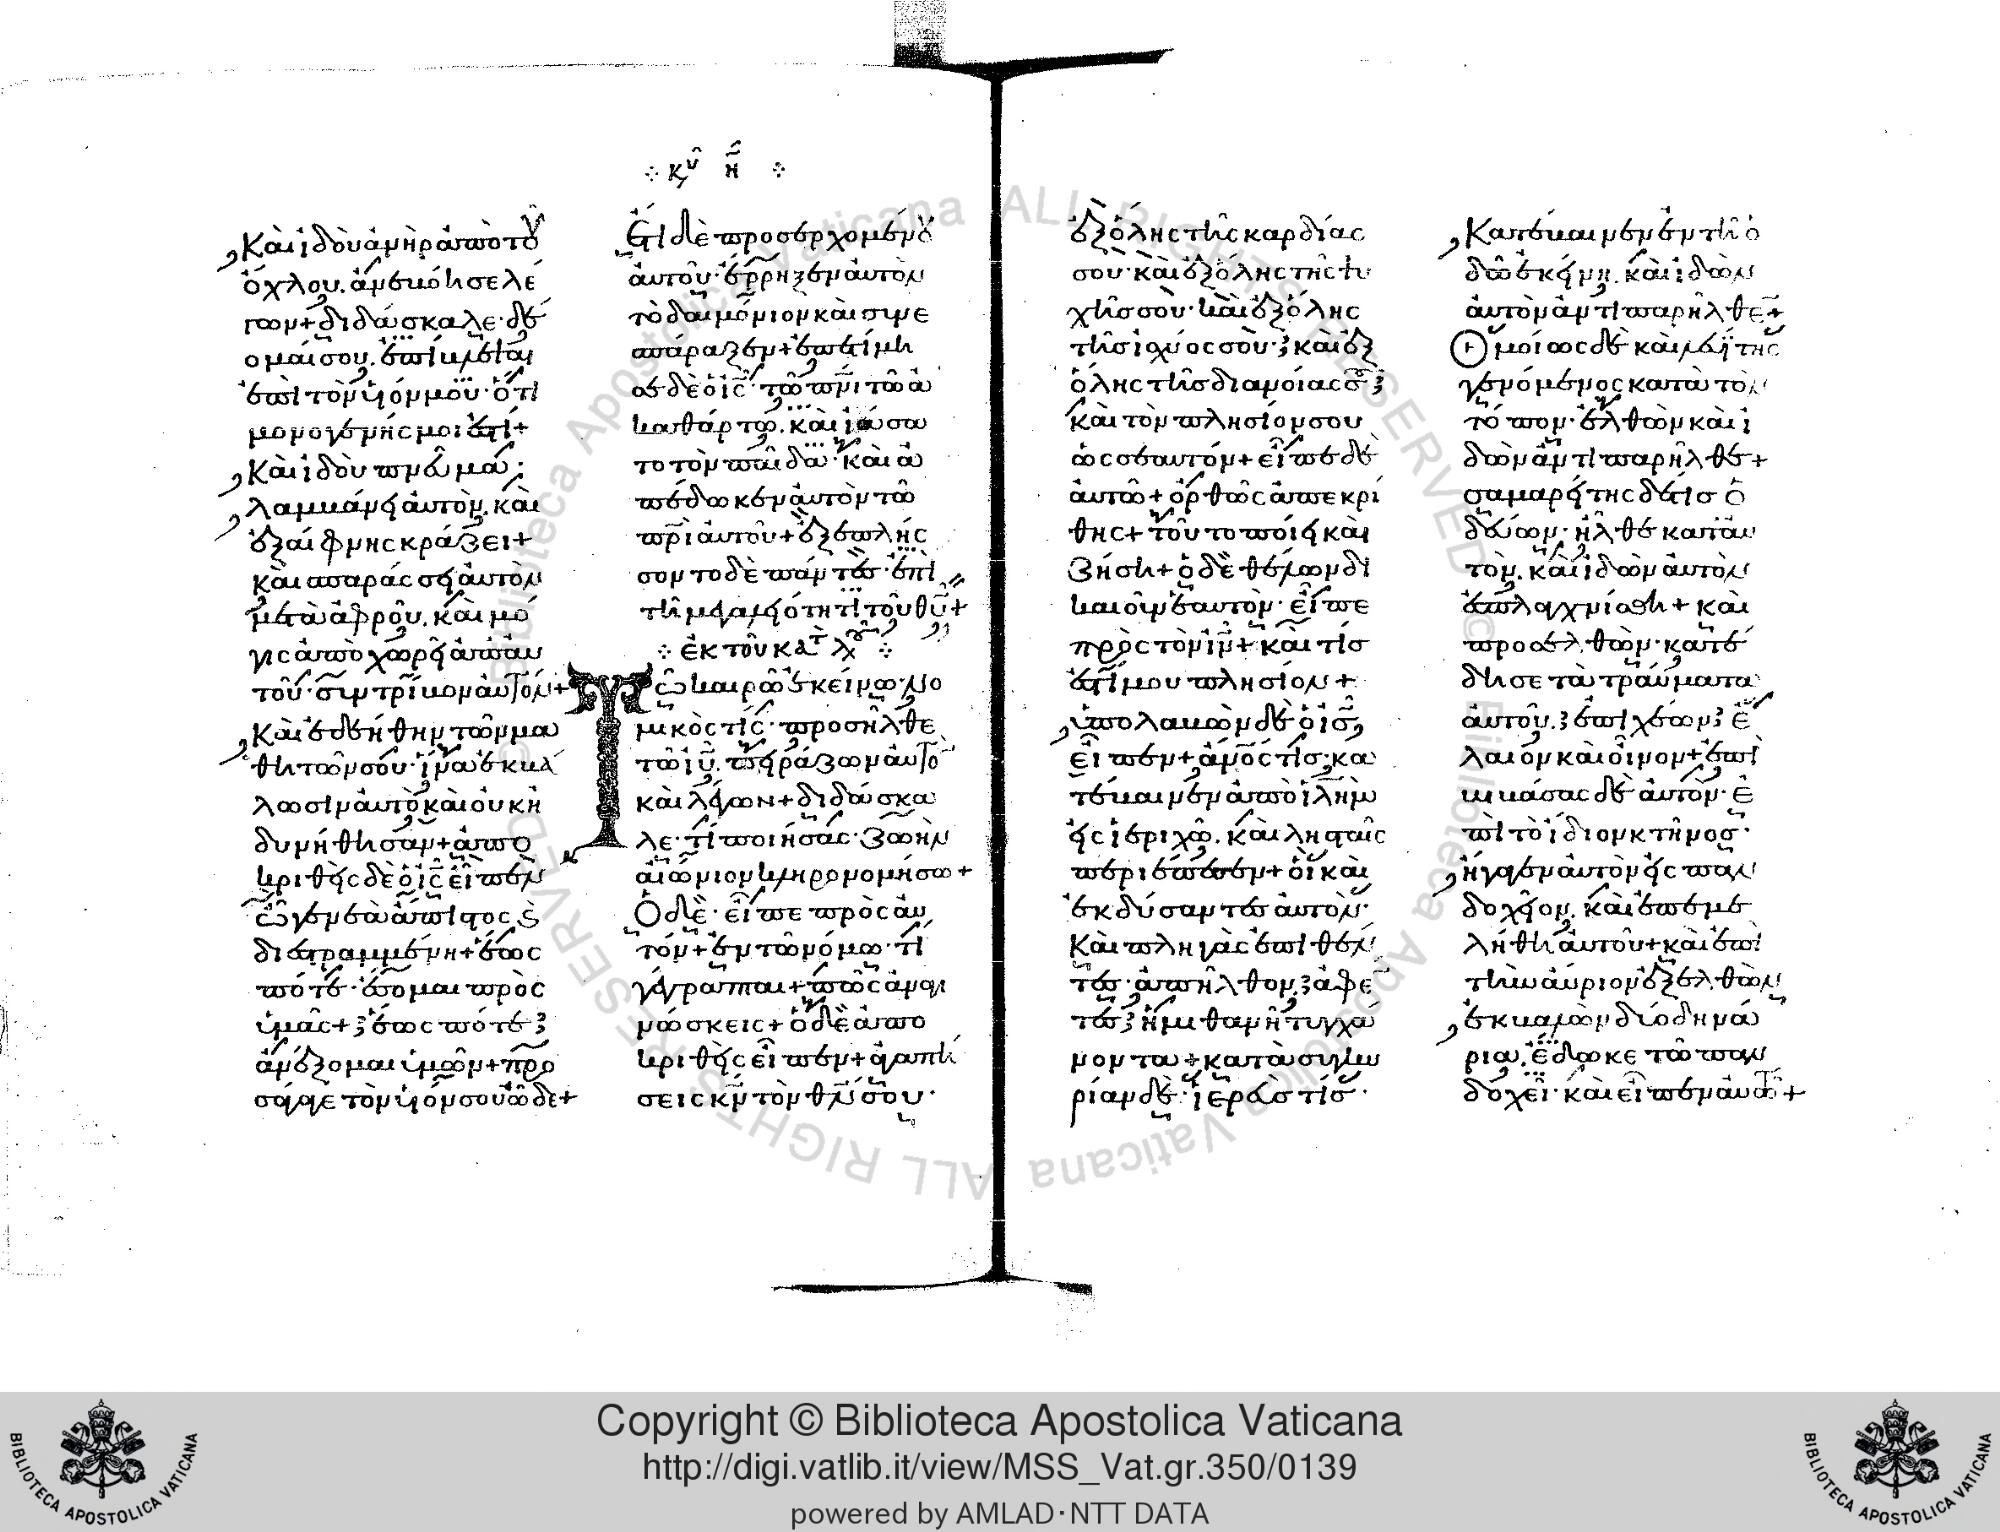 κυ η
Καὶ ἰδοὺ ἀνὴρ ἀπὸ τοῦ
ὄχλου. ἀνεβόησε λέ
γων+ διδάσκαλε· δέ
ομαί σου. ἐπίβλεψαι
ἐπὶ τὸν υἱόν μου· ὅτι
μονογενής μοι ἐστί+
Καὶ ἰδοὺ πνεῦμα
λαμβάνει αὐτὸν. καὶ
ἐξαίφνης κράζει+
καὶ σπαράσσει αὐτὸν
μετὰ ἀφροῦ. καὶ μό
γις ἀποχωρεῖ ἀπ αὐ
τοῦ· συντρίβον αὐτόν+
Καὶ ἐδεήθην τῶν μα
θητῶν σου· ἵνα ἐκβά
λωσιν αὐτὸ καὶ οὐκ ἠ
δυνήθησαν+ ἀπο
κριθεὶς δὲ ὁ ις εἶπεν
ὦ γενεὰ ἄπιστος κ
διεστραμμένη+ ἕως
πότε· ἔσομαι πρὸς
ὑμᾶς+ ἕως πότε
ἀνέξομαι ὑμῶν+ προ
σάγαγε τὸν υἱόν σου ὧδε+
Ἔτι δὲ προσερχομένου
αὐτοῦ· ἔρρηξεν αὐτὸν
τὸ δαιμόνιον καὶ συνε
σπάραξεν+ ἐπετίμη
σε δὲ ὁ ις· τῶ πνι τῶ ἀ
καθάρτω. καὶ ἰάσα
το τὸν παῖδα· καὶ ἀ
πέδωκεν αὐτὸν τῶ
πρι αὐτοῦ+ ἐξεπλήσ
σοντο δὲ πάντες· ἐπὶ
τῆ μεγαλειότητι τοῦ θυ+
ἐκ τοῦ κατ λγ
Τῶ καιρῶ ἐκείνω· νο
μικός τις· προσῆλθε
τῶ ιυ. πειράζων αὐτὸ
καὶ λέγων+ διδάσκα
λε· τί ποιήσας· ζωὴν
αἰώνιον κληρονομήσω+
Ὁ δὲ· εἶπε πρὸς αὐ
τόν+ ἐν τῶ νόμω· τί
γέγραπται+ πῶς ἀναγι
νώσκεις+ ὁ δὲ ἀπο
κριθεὶς εἶπεν+ ἀγαπή
σεις κν τὸν θν σου·
ἐξ ὅλης τῆς καρδίας
σου· καὶ ἐξ ὅλης τῆς ψυ
χῆς σου· καὶ ἐξ ὅλης
τῆς ἰσχύος σου· καὶ ἐξ
ὅλης τῆς διανοίας σου
καὶ τὸν πλησίον σου
ὡς σεαυτόν+ εἶπε δὲ
αὐτῶ+ ὀρθῶς ἀπεκρί
θης+ τοῦτο ποίει καὶ
ζήση+ ὁ δὲ θέλων δι
καιοῦν ἑαυτὸν· εἶπε
πρὸς τὸν ιν+ καὶ τίς
ἐστί μου πλησίον+
ὑπολαβὼν δὲ ὁ ις
εἶπεν+ ἄνος τις· κα
τέβαινεν ἀπὸ ιλημ
εἰς ἱεριχῶ. καὶ λησταῖς
περιέπεσεν+ οἳ καὶ
ἐκδύσαντες αὐτὸν·
Καὶ πληγὰς ἐπιθέν
τες· ἀπῆλθον. ἀφέν
τες ἡμιθανῆ τυγχά
νοντα+ κατὰ συγκυ
ρίαν δὲ· ἱερεύς τις·
Κατέβαινεν ἐν τῆ ὁ
δῶ ἐκείνη. καὶ ἰδὼν
αὐτὸν ἀντιπαρῆλθεν+
Ὁμοίως δὲ καὶ λευίτης
γενόμενος κατὰ τὸν
τόπον· ἐλθὼν καὶ ἰ
δὼν ἀντιπαρῆλθε+
σαμαρείτης δέ τις ὁ
δεύων· ἦλθε κατ αὐ
τὸν. καὶ ἰδὼν αὐτὸν
ἐσπλαγχνίσθη+ καὶ
προσελθὼν· κατέ
δησε τὰ τραύματα
αὐτοῦ. ἐπιχέων ἔ
λαιον καὶ οἶνον+ ἐπι
βιβάσας δὲ αὐτὸν· ἐ
πὶ τὸ ἴδιον κτῆνος·
ἤγαγεν αὐτὸν εἰς παν
δοχεῖον. καὶ ἐπεμε
λήθη αὐτοῦ+ καὶ ἐπὶ
τὴν αὔριον ἐξελθὼν
ἐκβαλὼν δύο δηνά
ρια. ἔδωκε τῶ παν
δοχεῖ· καὶ εἶπεν αὐτῶ+
© Biblioteca Apostolica Vaticana ALL RIGHTS RESERVED
Copyright © Biblioteca Apostolica Vaticana
http://digi.vatlib.it/view/MSS_Vat.gr.350/0139
powered by AMLAD·NTT DATA
BIBLIOTECA APOSTOLICA VATICANA
BIBLIOTECA APOSTOLICA VATICANA